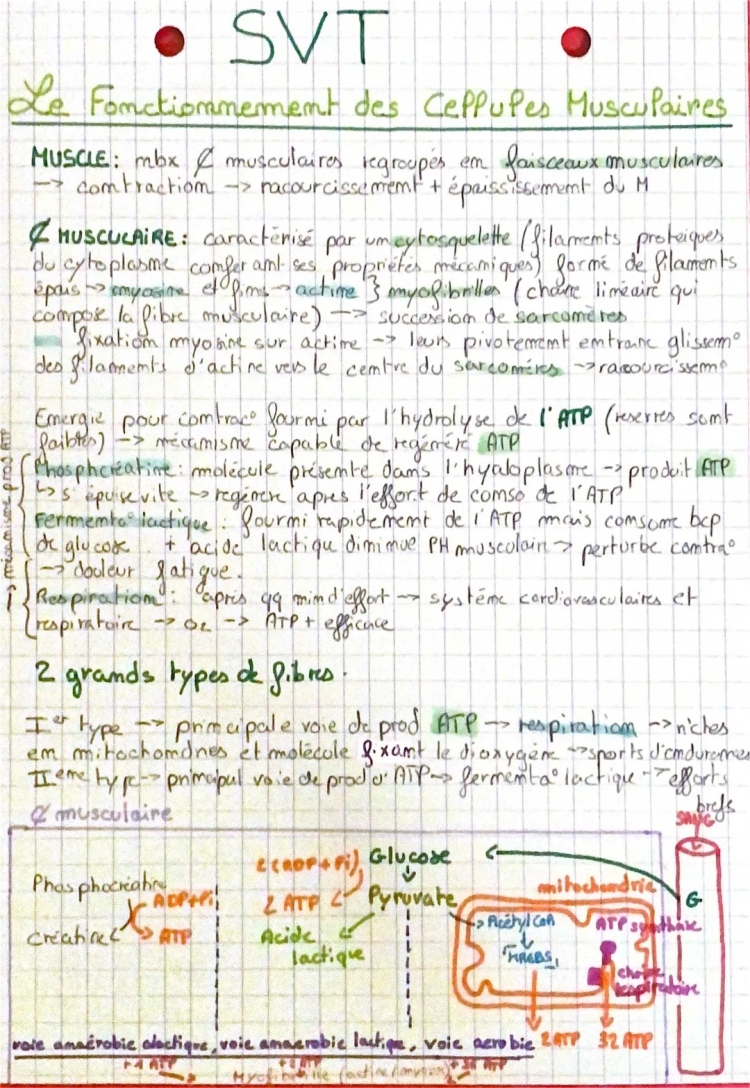 SVT
Le Fonctionnement des Cellules Musculaires
MUSCLE: mbx ₵ musculaires regroupés en faisceaux musculaires
→ contraction → racourcissement + épaississement du M
₵ MUSCULAIRE: caractérisé par un cytosquelette (filaments proteiques
du cytoplasme conferant ses propriétés mécaniques) formé de filaments
épais → myosine et fins → actine } myofibrilles (chaîne linéaire qui
compose la fibre musculaire) → succession de sarcomères
fixation myosine sur actine → leurs pivotement entraine glissem°
des filaments d'actine vers le centre du sarcomères → racourcissem°
Energie pour contrac° fourni par l'hydrolyse de l'ATP (reserves sont
faibles) → mécanisme capable de regénéré ATP
Phosphcréatine: molécule présente dans l'hyaloplasme → produit ATP
↳ s'épuise vite → regénère apres l'effort de conso de l'ATP
Fermenta° lactique: fourni rapidement de l'ATP mais consome bcp
de glucose + acide lactique diminue PH musculair → perturbe contra°
→ douleur fatigue.
Respiration: après qq min d'effort → système cardiovasculaires et
respiratoire → O2 → ATP + efficace
→ mécanisme prod ATP
2 grands types de fibres.
Ier type → principale voie de prod ATP → respiration → riches
en mitochondries et molécule fixant le dioxygène → sports d'endurances
IIeme type → principal voie de prod d'ATP → fermenta° lactique → efforts
brefs
₵ musculaire
SANG
2(ADP+Pi) Glucose
G
Phosphocréatine
ADP+Pi
2 ATP
Pyruvate
mitochondrie
Créatine
ATP
Acide
lactique
Acétyl CoA
KREBS
ATP synthase
chaîne
respiratoire
voie anaérobie alactique, voie anaerobie lactique, voie aerobie
2ATP
32 ATP
+1 ATP
Myofibrille (actine/myosine)